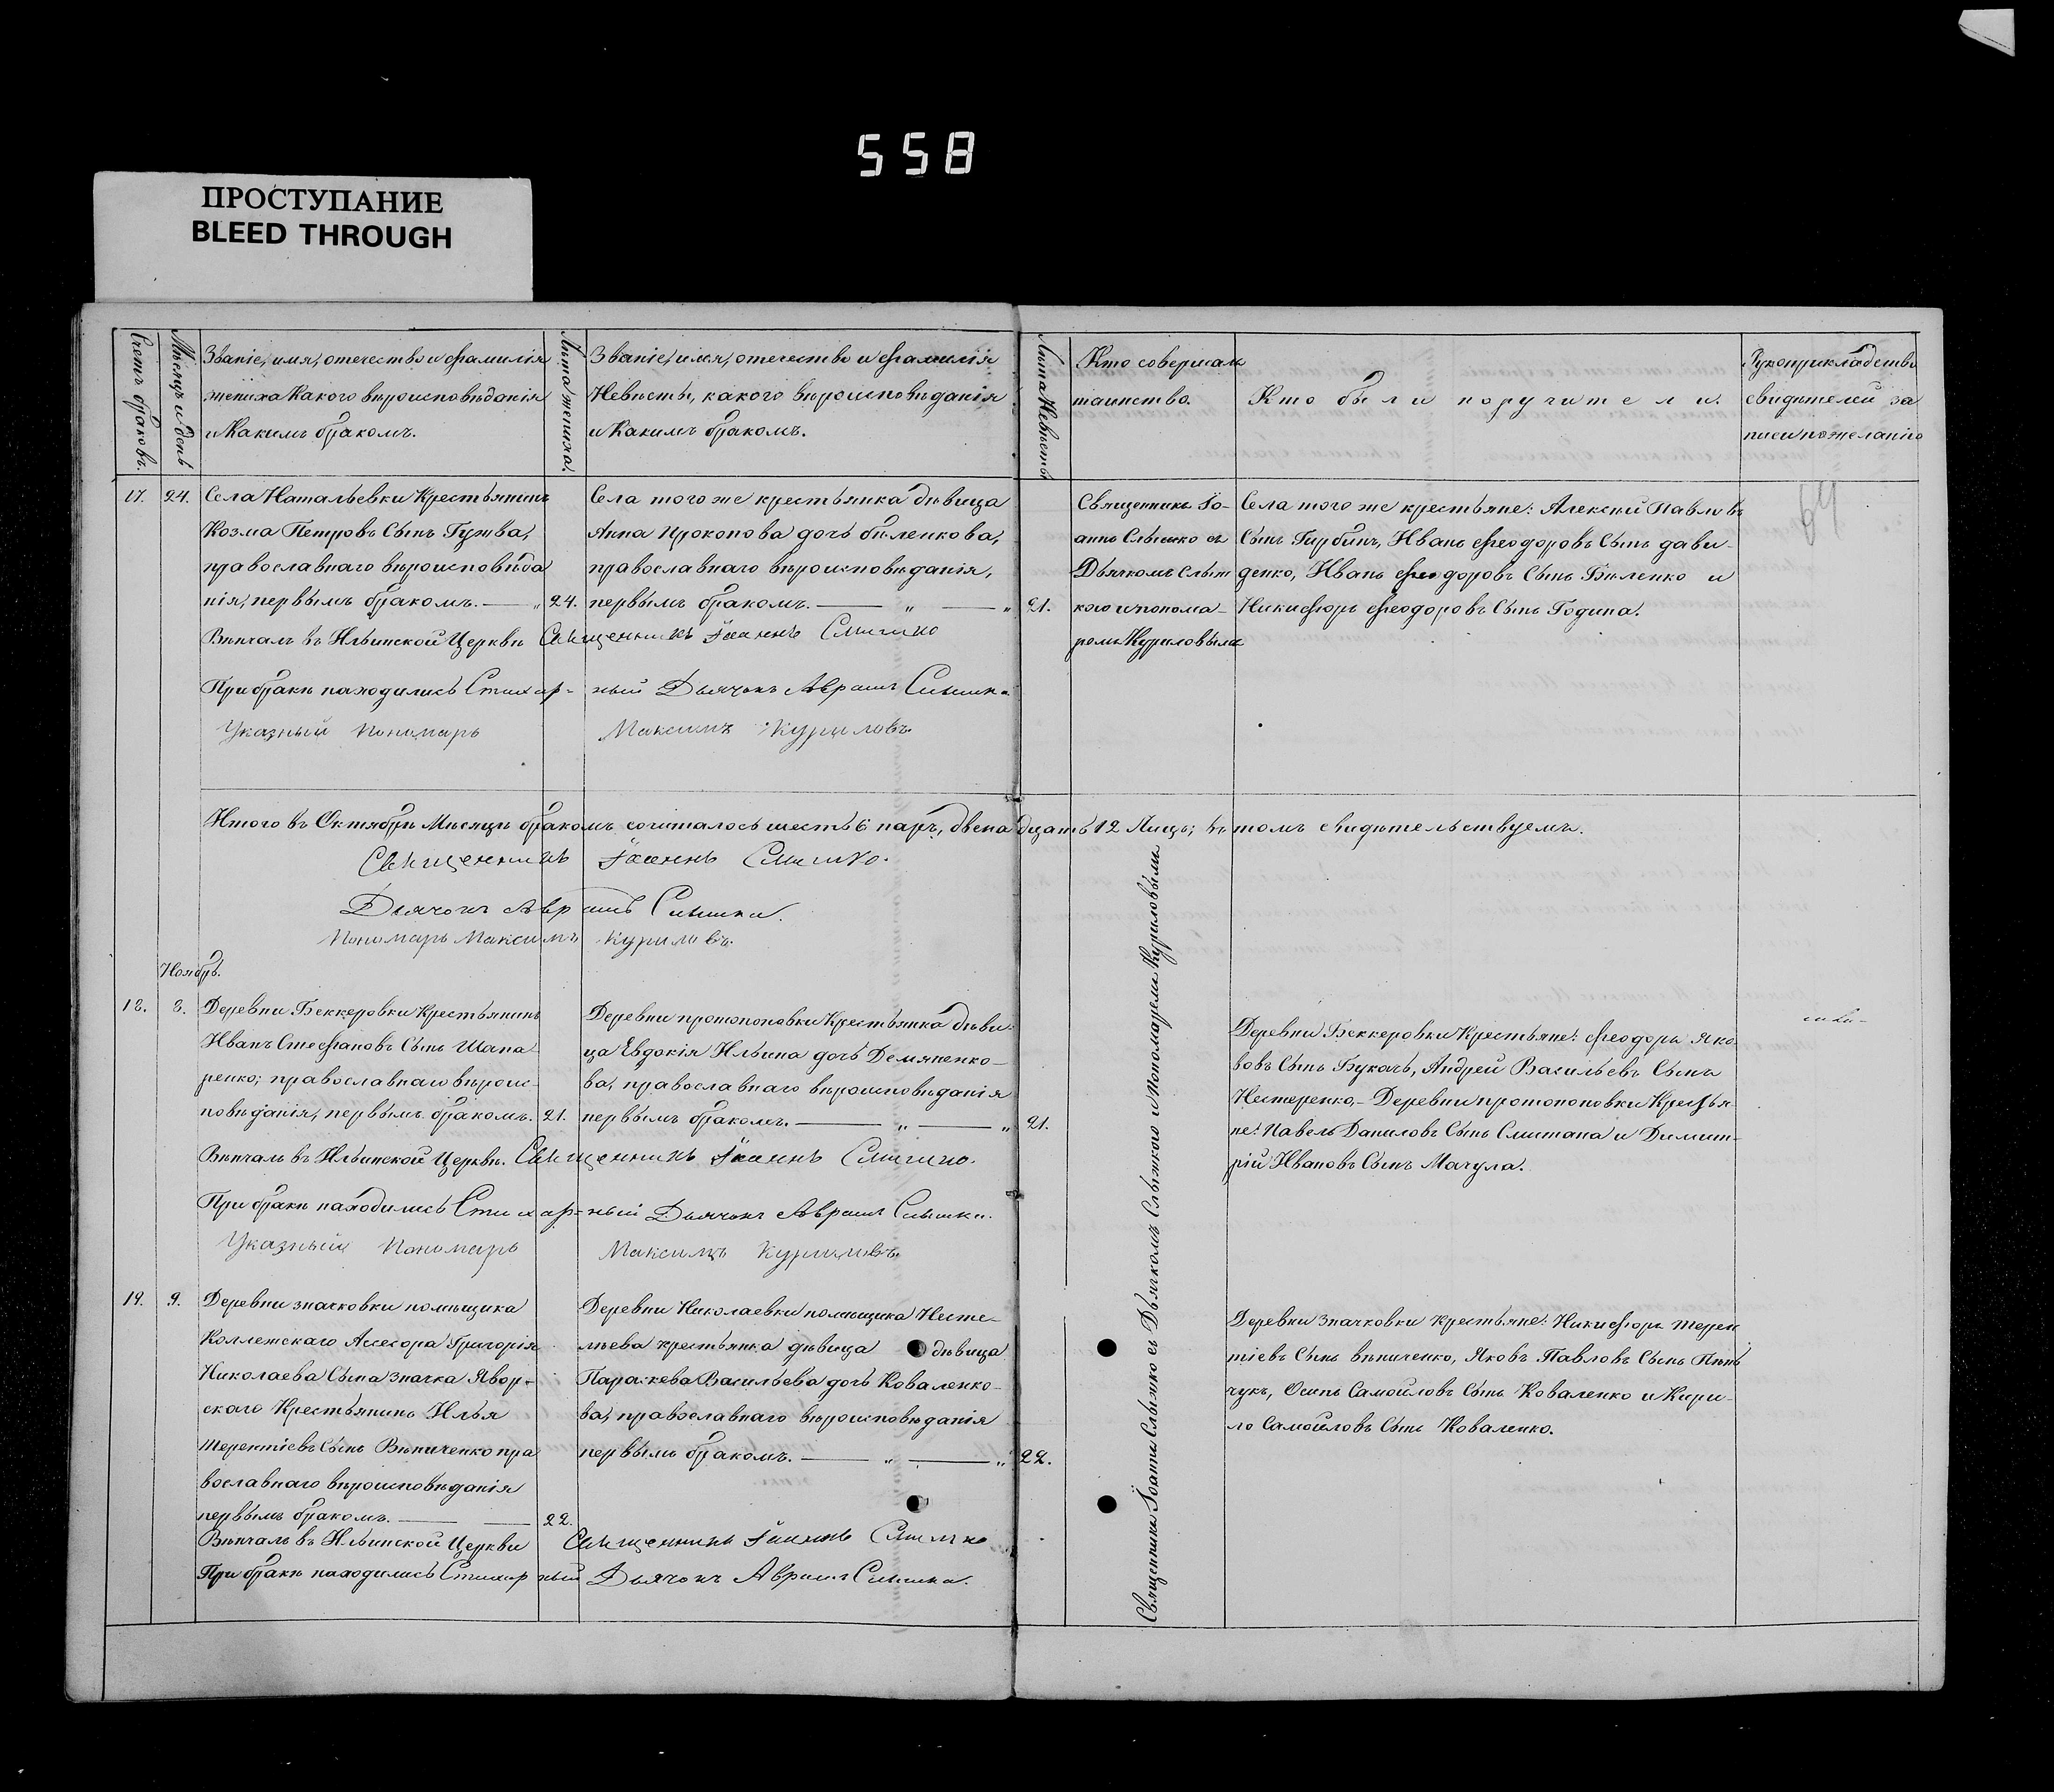 558
ПРОСТУПАНИЕ
BLEED THROUGH
Счетъ браковъ.
Мѣсяцъ и день
Званіе, имя, отечество и фамилія
жениха Какого вѣроисповѣданія
и Какимъ бракомъ.
Лѣта жениха.
Званіе, имя, отечество и фамилія
Невѣсты, какого вѣроисповѣданія
и Какимъ бракомъ.
Лѣта Невѣсты
Кто совершалъ
таинство.
Кто были поручители.
Рукоприкладство
свидѣтелей за
писи по желанію
64
17. 24. Села Натальевки Крестьянинъ
Козма Петровъ Сынъ Гужва,
православнаго вѣроисповѣда
нія, первымъ бракомъ. — „ 24.
Села того же крестьянка дѣвица
Анна Прокопова дочь биленкова,
православнаго вѣроисповѣданія,
первымъ бракомъ. — „ — „ 21.
Священникъ Іо-
аннъ Слышко съ
Дьячкомъ Слыш
кого и понома-
ромъ Куриловымъ
Села того же крестьяне: Алексѣй Павловъ
Сынъ Гирбинъ, Иванъ Феодоровъ Сынъ дави-
денко, Иванъ Феодоровъ Сынъ Биленко и
Никифоръ Феодоровъ Сынъ Година.
Вѣнчалъ въ Ильинской Церквѣ Священникъ Іоаннъ Слышко
При бракѣ находились Стихар- ный Дьячокъ Авраамъ Слышка
Указный Пономарь Максимъ Куриловъ.
Итого въ Октябрѣ Мѣсяцѣ бракомъ сочиталось шесть 6 паръ, двенадцать 12 Лицъ; въ томъ свидѣтельствуемъ.
Священникъ Іоаннъ Слышко.
Дьячокъ Авраамъ Слышка.
Пономарь Максимъ Куриловъ.
Ноябрь.
18. 8. Деревни Беккеровки Крестьянинъ
Иванъ Стефановъ Сынъ Шапа
ренко; православнаго вѣроис-
повѣданія, первымъ бракомъ. 21.
Деревни протопоповки Крестьянка дѣви-
ца Евдокія Ильина дочь Демяненко-
ва, православнаго вѣроисповѣданія
первымъ бракомъ. — „ — „ 21.
Священникъ Іоаннъ Слышко съ Дьячкомъ Слыжкого и Пономаремъ Куриловымъ
Деревни Беккеровки Крестьяне: Феодоръ Яко
вовъ Сынъ Букачь, Андрей Васильевъ Сынъ
Нестеренко, – Деревни протопоповки Крестья-
не: Павелъ Даниловъ Сынъ Смитана и Димит-
рій Ивановъ Сынъ Мачула.
Вѣнчалъ въ Ильинской Церквѣ. Священникъ Іоаннъ Слышко.
При бракѣ находились Стихар- ный Дьячокъ Авраамъ Слышка.
Указный Пономарь Максимъ Куриловъ.
19. 9. Деревни значковки помѣщика
Коллежскаго Ассесора Григорія
Николаева Сына значка Явор-
скаго Крестьянинъ Илья
Терентіевъ Сынъ Вѣниченко пра
вославнаго вѣроисповѣданія
первымъ бракомъ. — — 22.
Деревни Николаевки помѣщика Несте-
лѣева крестьянка дѣвица дѣвица
Параскева Васильева дочь Коваленко-
ва, православнаго вѣроисповѣданія
первымъ бракомъ. — „ — „ 22.
Деревни значковки крестьяне: Никифоръ терен
тіевъ Сынъ вѣниченко, Яковъ Павловъ Сынъ Пѣнь
чукъ, Осипъ Самойловъ Сынъ Коваленко и Кири-
ло Самойловъ Сынъ Коваленко.
Вѣнчалъ въ Ильинской Церкви Священникъ Іоаннъ Слышко
При бракѣ находились Стихарный Дьячокъ Авраамъ Слышка.